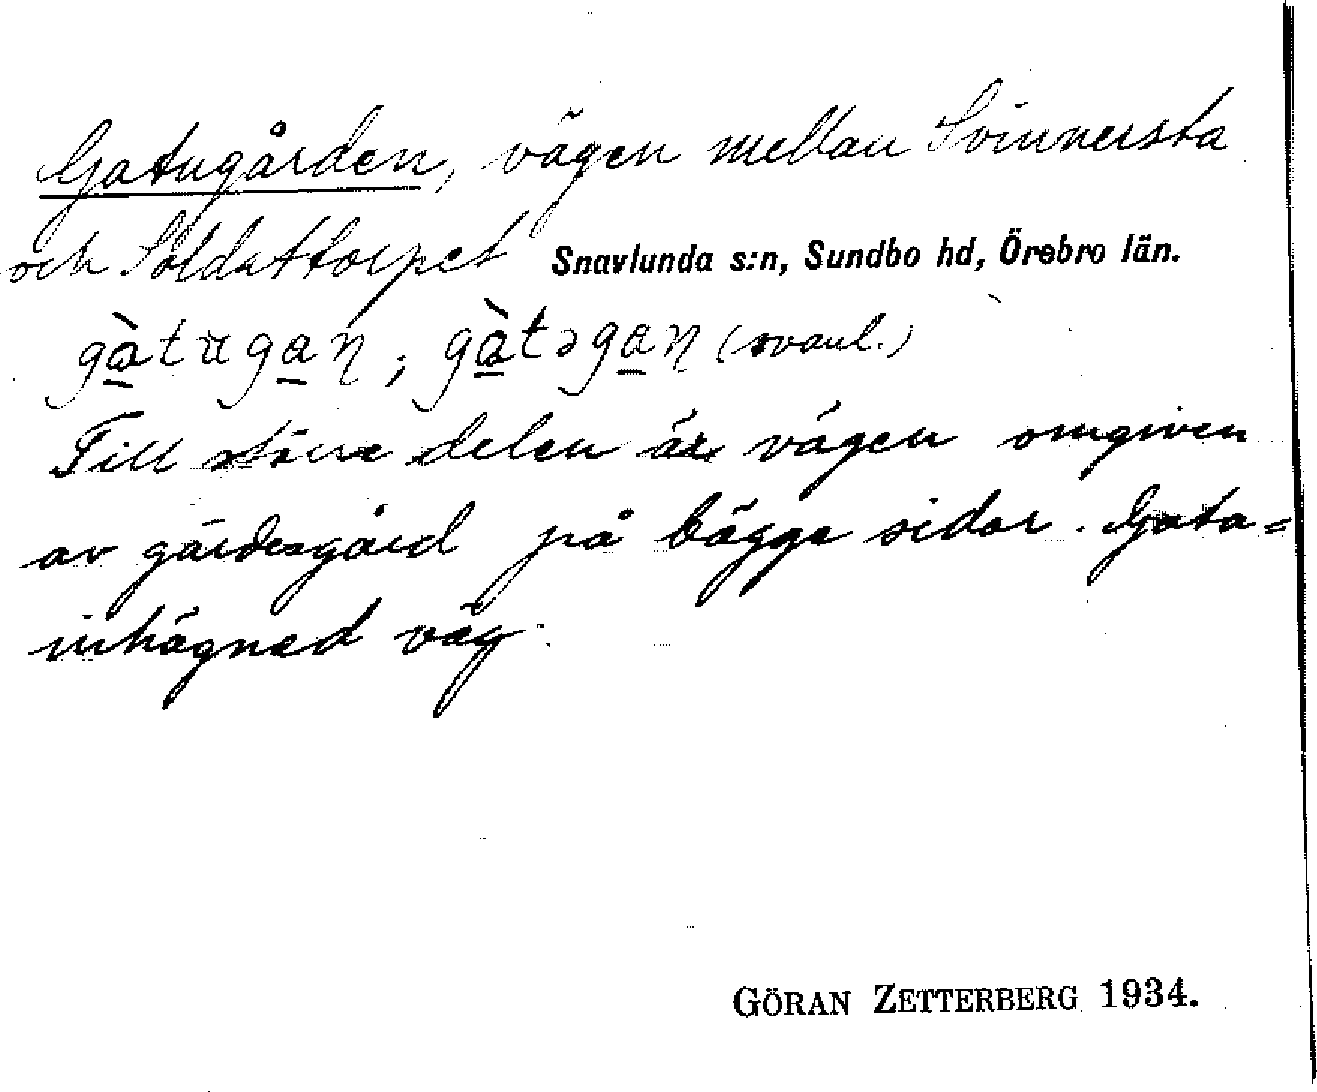 Gatugården, vägen mellan Svinnersta
och Soldattorpet Snavlunda s:n, Sundbo hd, Örebro län.
gàtugaɳ, gàtəgaɳ (ovanl.)
Till större delen är vägen omgiven
av gärdesgård på bägge sidor. Gata=
inhägnad väg.
GÖRAN ZETTERBERG 1934.